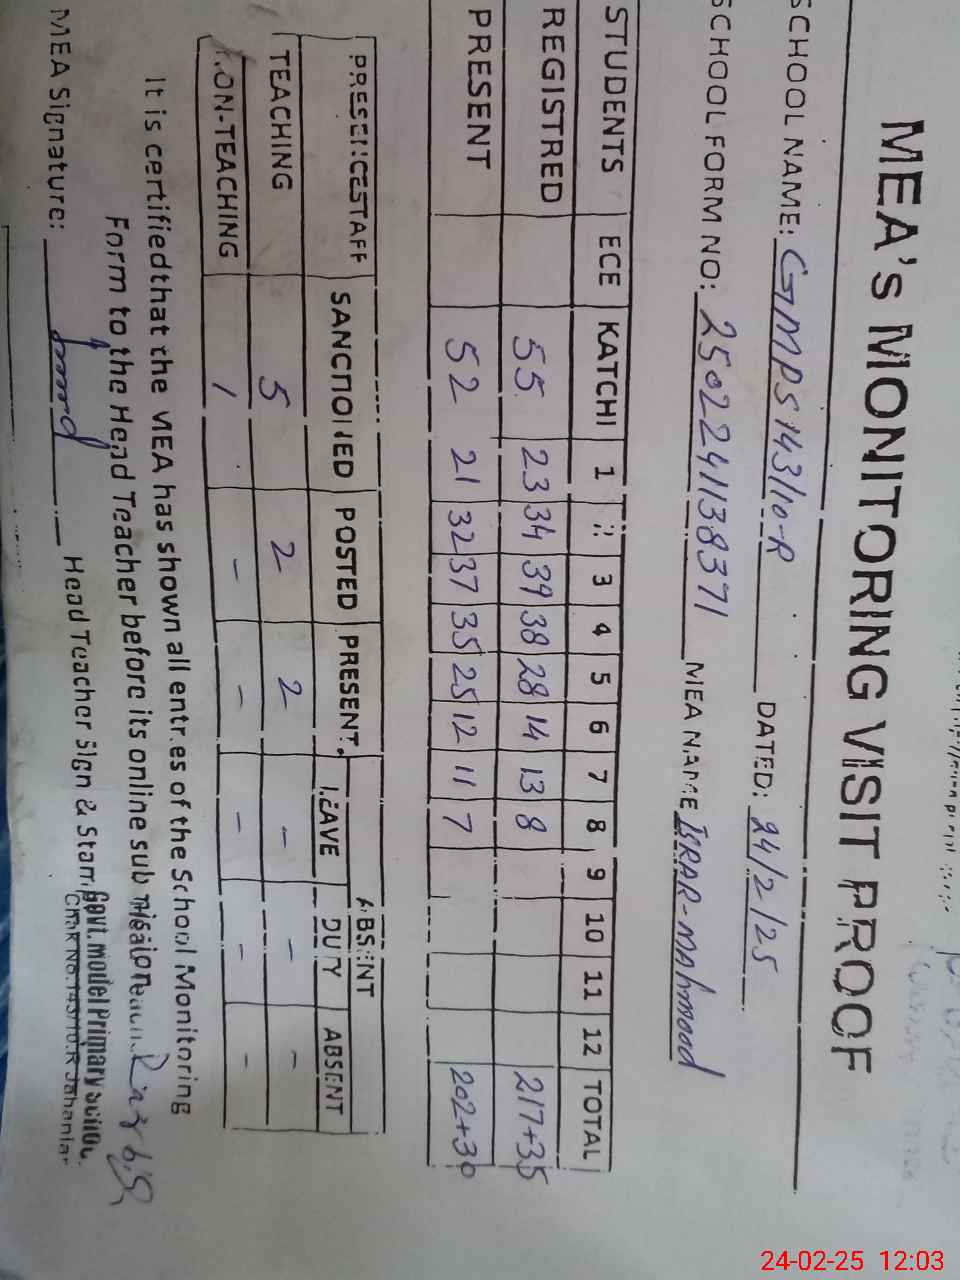 MEA's MONITORING VISIT PROOF
SCHOOL NAME: GMPS 143/10-R DATED: 24/2/25
SCHOOL FORM NO: 2502241138371 MEA NAME ISRAR-MAhmood
STUDENTS ECE KATCHI 1 2 3 4 5 6 7 8 9 10 11 12 TOTAL
REGISTRED 55 23 34 39 38 28 14 13 8 217+35
PRESENT 52 21 32 37 35 25 12 11 7 202+30
PRESENCE STAFF SANCTIONED POSTED PRESENT ABSENT
LEAVE DUTY ABSENT
TEACHING 5 2 2 - - -
NON-TEACHING 1 - - - - -
It is certified that the MEA has shown all entries of the School Monitoring
Form to the Head Teacher before its online submission
MEA Signature: Head Teacher Sign & Stamp
Govt. model Primary School
Chak No. 143/10.R Jahanian
24-02-25 12:03